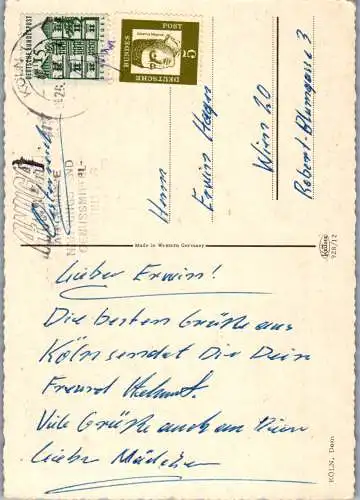 KÖLN
DEUTSCHE BUNDESPOST
DEUTSCHE
BUNDES
POST
5
NAHRUNGS UND
GENUSSMITTEL-
Herrn
Erwin
Wien 20
Robert-Blumgasse 3
Österreich
Made in Western Germany
928/12
KÖLN, Dom
Lieber Erwin!
Die besten Grüße aus
Köln sendet Dir Dein
Freund Helmut.
Viele Grüße auch an Deine
liebe Mädchen